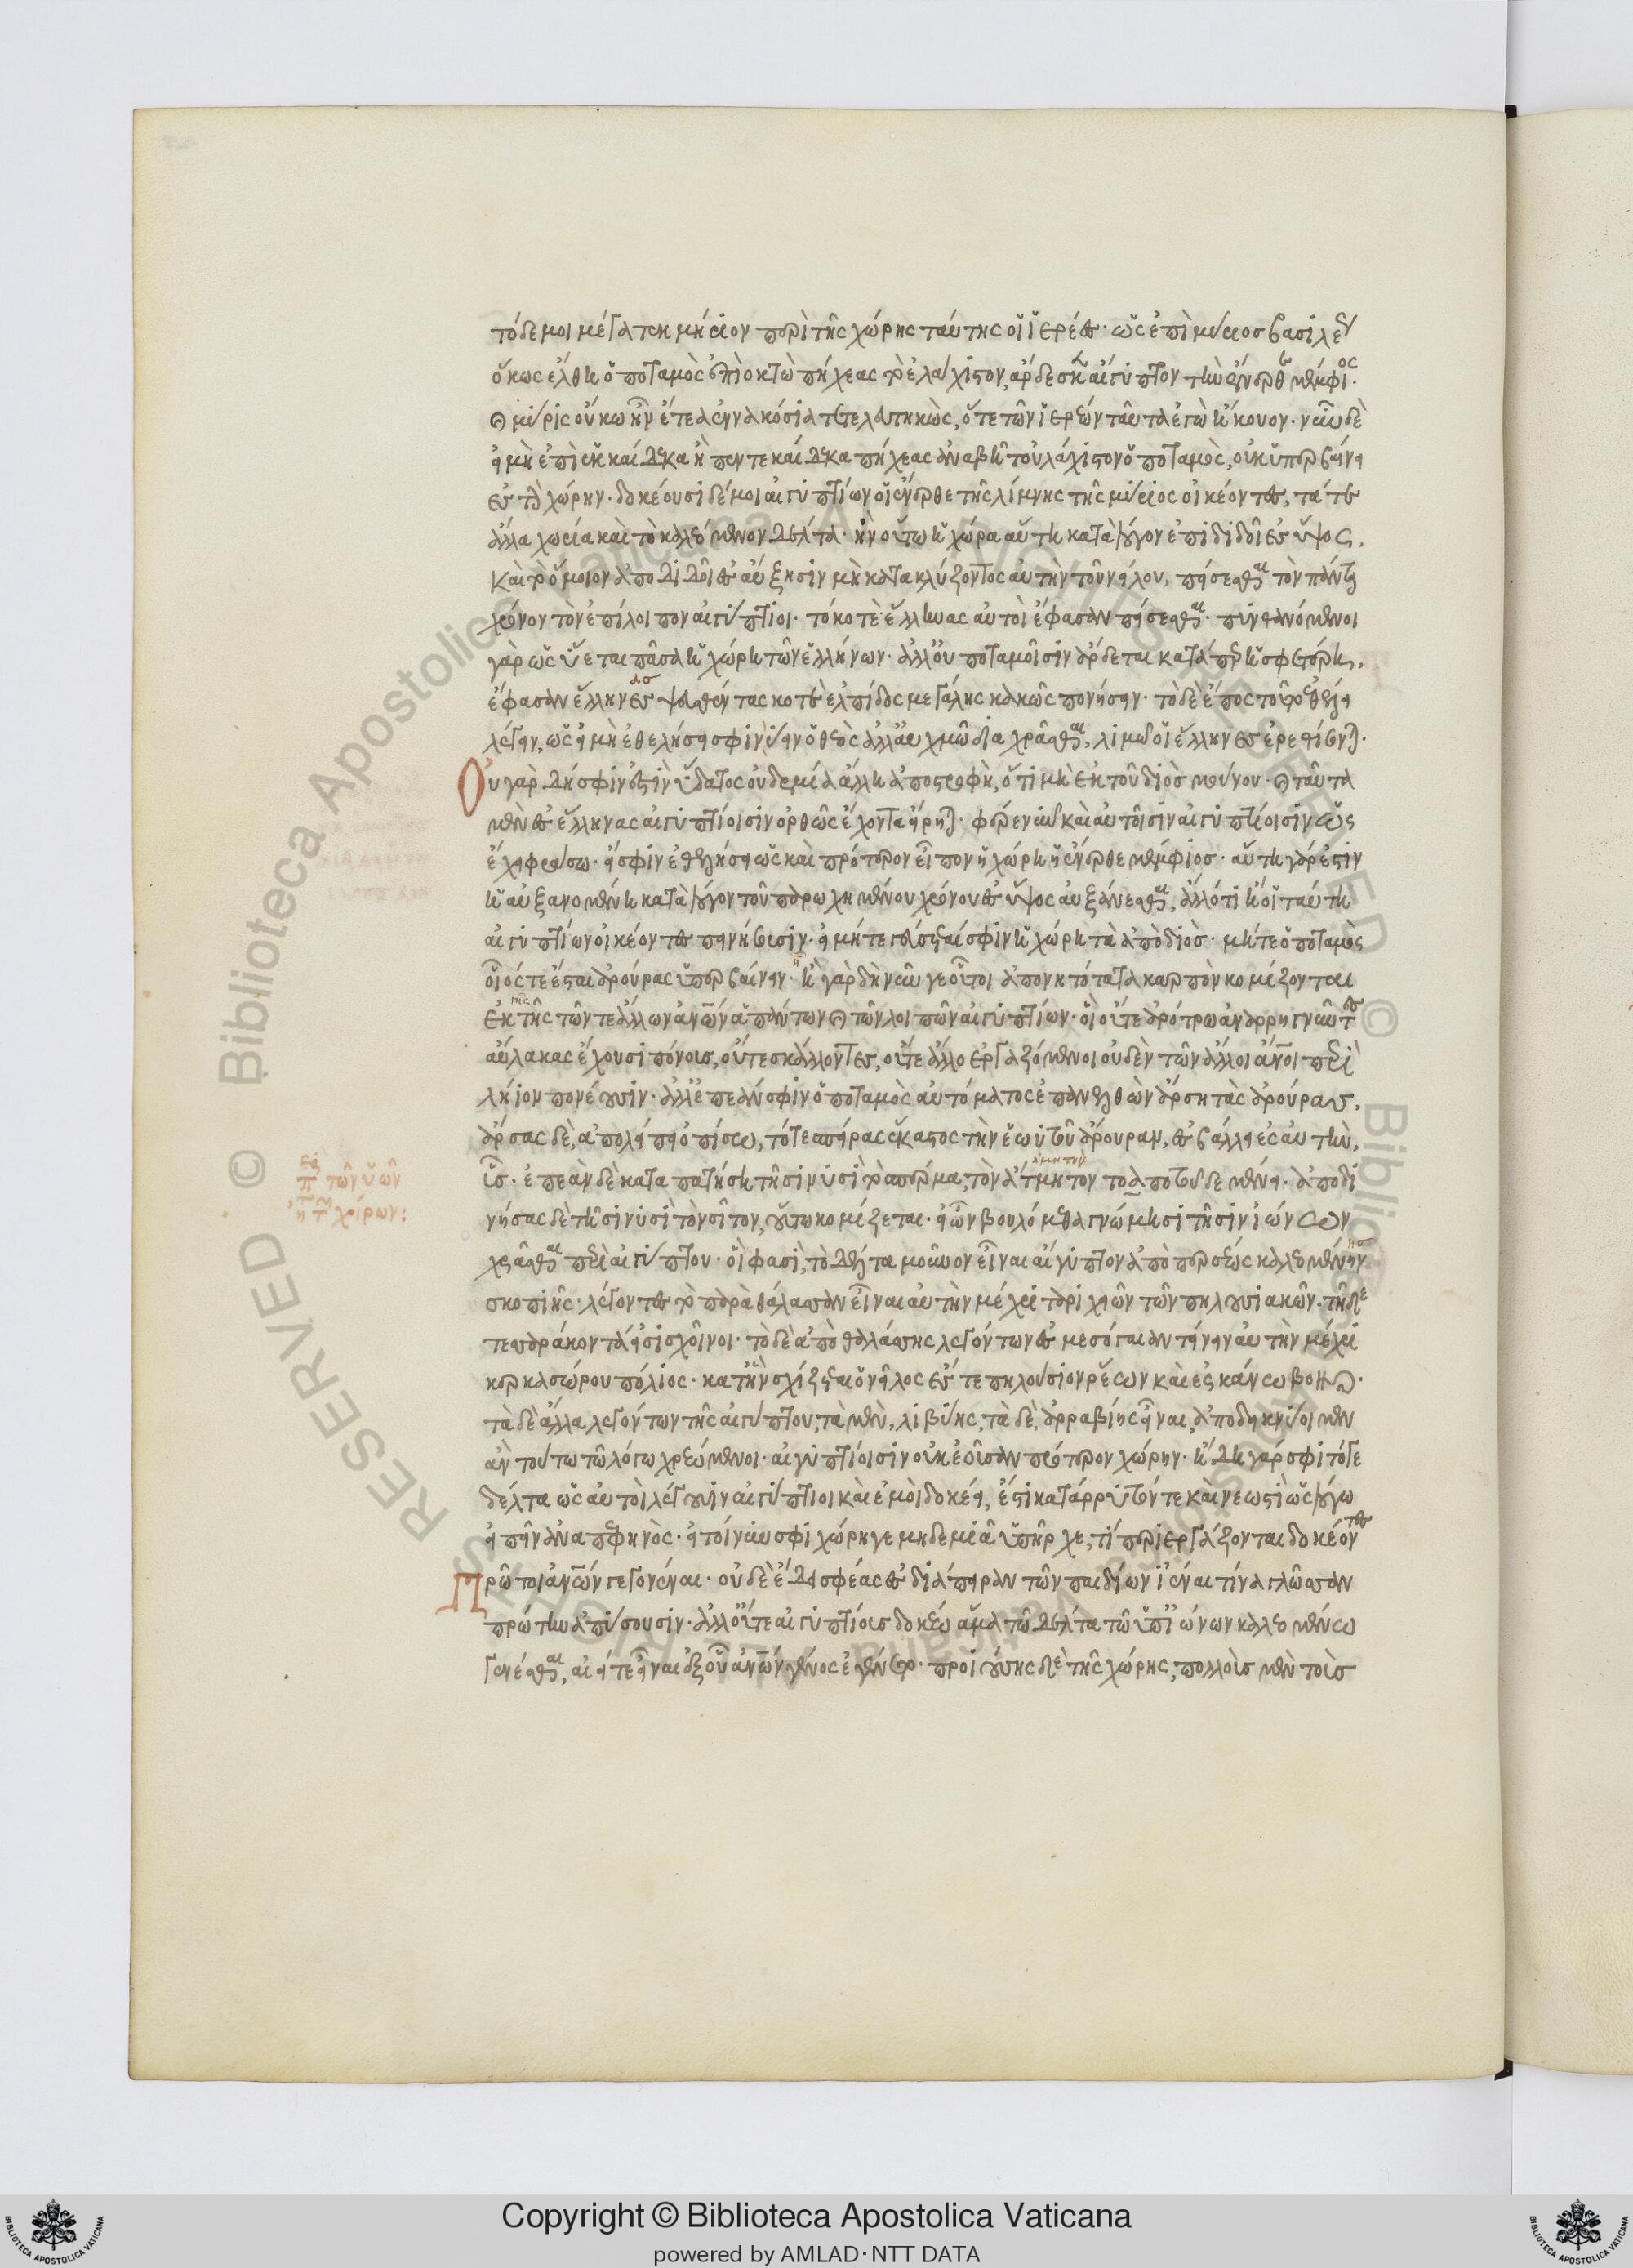 τόδε μοι μέγα τεκμήριον περὶ τῆς χώρης ταύτης οἱ ἱερέες. ὡς ἐπὶ μύριος βασιλέος
ὅκως ἔλθη ὁ ποταμὸς ἐπὶ ὀκτὼ πήχεας τὸ ἐλάχιστον, ἄρδεσκε αἴγυπτον τὴν ἔνερθε μέμφιος.
καὶ μύρις οὔκω ἦν ἔτεα ἐννακόσια τετελευτηκὼς, ὅτε τῶν ἱερέων ταῦτα ἐγὼ ἤκουον. νῦν δὲ
εἰ μὴ ἐπὶ ἑκκαίδεκα ἢ πεντεκαίδεκα πήχεας ἀναβῆ τοὐλάχιστον ὁ ποταμὸς, οὐκ ὑπερβαίνει
ἐς τὴν χώρην. δοκέουσι δέ μοι αἰγυπτίων οἱ ἔνερθε τῆς λίμνης τῆς μύριος οἰκέοντες, τά τε
ἄλλα χωρία καὶ τὸ καλεόμενον δέλτα. ἢν οὕτω ἡ χώρα αὕτη κατὰ λόγον ἐπιδιδοῖ ἐς ὕψος,
καὶ τὸ ὅμοιον ἀποδιδοῖ ἐς αὔξησιν μὴ κατακλύζοντος αὐτὴν τοῦ νείλου, πείσεσθαι τὸν πάντα
χρόνον τὸν ἐπίλοιπον αἰγύπτιοι. τό κοτε ἕλληνας αὐτοὶ ἔφασαν πείσεσθαι. πυνθανόμενοι
γὰρ ὡς ὕεται πᾶσα ἡ χώρη τῶν ἑλλήνων. ἀλλ' οὐ ποταμοῖσιν ἄρδεται κατάπερ ἡ σφετέρη,
ἔφασαν ἕλληνες ψευσθέντας κοτὲ ἐλπίδος μεγάλης κακῶς πεινήσειν. τὸ δὲ ἔπος τοῦτο ἐθέλει
λέγειν, ὡς εἰ μὴ ἐθελήσει σφιν ὕειν ὁ θεὸς ἀλλὰ αὐχμῶ διαχρᾶσθαι, λιμῶ οἱ ἕλληνες αἱρεθήσονται.
Οὐ γὰρ δή σφιν ἐστὶν ὕδατος οὐδεμία ἄλλη ἀποστροφὴ, ὅτι μὴ ἐκ τοῦ διὸς μούνου. καὶ ταῦτα
μὲν ἐς ἕλληνας αἰγυπτίοισιν ὀρθῶς ἔχοντα εἴρηται. φέρε νῦν καὶ αὐτοῖσιν αἰγυπτίοισιν ὡς
ἔχει φράσω. εἴ σφιν ἐθελήσει ὡς καὶ πρότερον εἶπον ἡ χώρη ἡ ἔνερθε μέμφιος. αὕτη γάρ ἐστιν
ἡ αὐξανομένη κατὰ λόγον τοῦ παρωχημένου χρόνου ἐς ὕψος αὐξάνεσθαι, ἄλλό τι ἢ οἱ ταύτη
αἰγυπτίων οἰκέοντες πεινήσουσιν. εἰ μήτε γε ὕσεταί σφιν ἡ χώρη τὰ ἀπὸ διὸς. μήτε ὁ ποταμὸς
οἷός τε ἔσται ἀρούρας ὑπερβαίνειν. ἦ γὰρ δὴ νῦν γε οὗτοι ἀπονητότατα καρπὸν κομίζονται
ἐκ τῆς τῶν τε ἄλλων ἀνων ἁπάντων καὶ τῶν λοιπῶν αἰγυπτίων. οἳ οὔτε ἀρότρω ἀναρρηγνῦντες
αὔλακας ἔχουσι πόνους, οὔτε σκάλλοντες, οὔτε ἄλλο ἐργαζόμενοι οὐδὲν τῶν ἄλλοι ἄνοι περὶ
λήιον πονέουσιν. ἀλλ' ἐπεάν σφιν ὁ ποταμὸς αὐτόματος ἐπανελθὼν ἄρση τὰς ἀρούρας,
ἄρσας δὲ, ἀπολίπη ὀπίσω, τότε σπείρας ἕκαστος τὴν ἑωυτοῦ ἄρουραν, ἐσβάλλει ἐς αὐτὴν,
ὗς. ἐπεὰν δὲ καταπατήση τῆσιν ὑσὶ τὸ σπέρμα, τὸν ἄτμητον τὸ ἀπὸ τοῦδε μένει. ἀποδι
νήσας δὲ τῆσιν ὑσὶ τὸν σῖτον, οὕτω κομίζεται. εἰ ὦν βουλόμεθα γνώμησι τῆσιν ἰώνων
χρᾶσθαι περὶ αἴγυπτον. οἵ φασὶ, τὸ δέλτα μοῦνον εἶναι αἴγυπτον ἀπὸ περσέως καλεομένην
σκοπιῆς. λέγοντες τὸ παρὰ θάλασσαν εἶναι αὐτὴν μέχρι ταριχηίων τῶν πηλουσιακῶν. τῆ δὲ
τεσσεράκοντά εἰσι σχοῖνοι. τὸ δὲ ἀπὸ θαλάσσης λεγόντων ἐς μεσόγαιαν τείνειν αὐτὴν μέχρι
κερκασώρου πόλιος. κατ' ἣν σχίζεται ὁ νεῖλος ἔς τε πηλούσιον ῥέων καὶ ἐς κάνωβον.
τὰ δὲ ἄλλα λεγόντων τῆς αἰγύπτου, τὰ μὲν, λιβύης, τὰ δὲ, ἀρραβίης εἶναι, ἀποδεικνύοιμεν
ἂν τούτω τῶ λόγω χρεώμενοι. αἰγυπτίοισιν οὐκ ἐοῦσαν πρότερον χώρην. ἤδη γάρ σφι τό γε
δέλτα ὡς αὐτοὶ λέγουσιν αἰγύπτιοι καὶ ἐμοὶ δοκέει, ἐστὶ κατάρρυτόν τε καὶ νεωστὶ ὡς λόγω
εἰπεῖν ἀναπεφηνὸς. εἰ τοίνυν σφι χώρη γε μηδεμία ὑπῆρχε, τί περιεργάζονται δοκέοντες
Πρῶτοι ἀνων γεγονέναι. οὐδὲ ἔδει σφέας ἐς διάπειραν τῶν παιδίων ἰέναι τίνα γλῶσσαν
πρώτην ἀπήσουσιν. ἀλλ' οὔτε αἰγυπτίους δοκέω ἅμα τῶ δέλτα τῶ ὑπὸ ἰώνων καλεομένω
γενέσθαι, αἰεί τε εἶναι ἐξ οὗ ἀνων γένος ἐγένετο. προϊούσης δὲ τῆς χώρης, πολλοὺς μὲν τοὺς
περὶ τῶν ὑῶν
ἢ τῶν χοίρων:
Copyright © Biblioteca Apostolica Vaticana
powered by AMLAD·NTT DATA